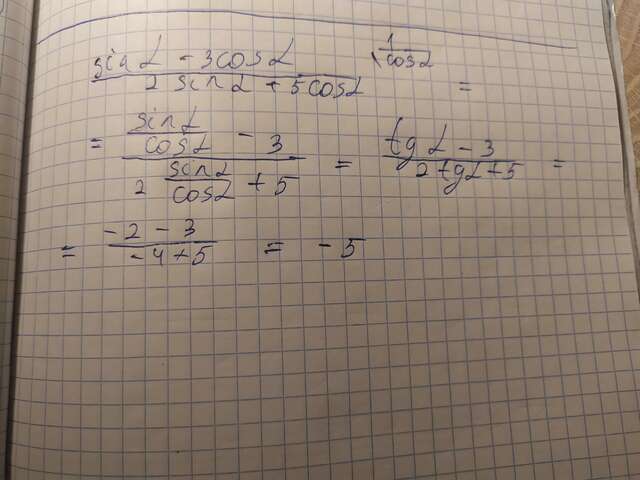 sin α - 3cos α / 2 sin α + 5cos α \ 1/cos α =
= sin α/cos α - 3 / 2 sin α/cos α + 5 = tg α - 3 / 2 tg α + 5 =
= -2 - 3 / -4 + 5 = -5